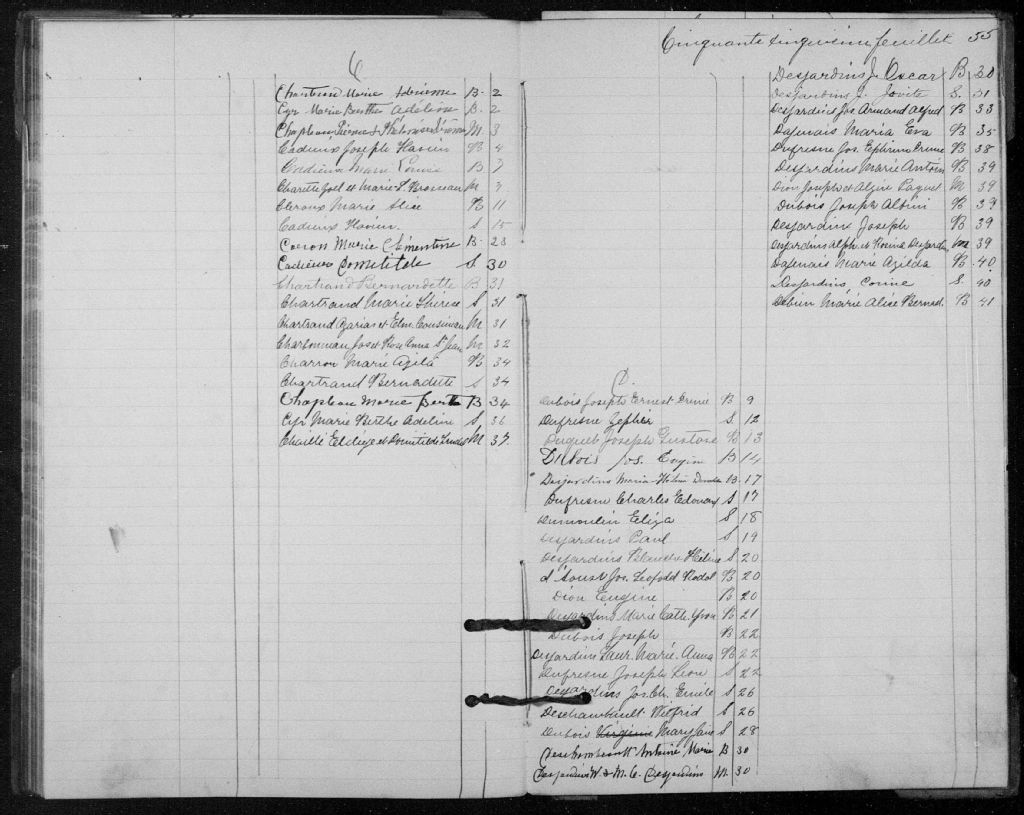 C
Chartrand Marie Adrienne B. 2
Cyr Marie Berthe Adéline B. 2
Chapleau, Pierre et M. 3
Cadieux Joseph Xavier B 4
Cadieux Marie Louise B 7
Charette Joel et Marie L. Broseau M 7
Cléroux Marie Alice B 11
Cadieux Xavier. S 15
Caron Marie Clémentine B. 28
Cadieux Domitilde S. 30
Chartrand Bernardette B 31
Chartrand Marie Therese S 31
Chartrand Azarias et Elm. Cousineau M 31
Charbonneau Jos et Rose Anna St Jean M 32
Charron Marie Azila B 34
Chartrand Bernadette S 34
Chapleau Marie Berth B 34
Cyr Marie Berthe Adeline S 36
Chaillé Eldége et Domitilde M 37
Cinquante cinquième feuillet 55
D.
Dubois Joseph Ernest B 9
Dufresne Zéphir S. 12
Duquet Joseph Gustave B 13
Dubois Jos. B 14
Desjardins Maria B. 17
Dufresne Charles Edouard S 17
Dumoulin Eliza S 18
Desjardins Paul S 19
Desjardins Blanche Hélène S 20
d'Aoust Jos. Leopold Rodol B 20
Dion Eugène B 20
Desjardins Marie Cath. Yvon B 21
Dubois Joseph B 22
Desjardins Laur. Marie. Anna B 22
Dufresne Joseph Leon S 22
Desjardins Jos. Ch. Emile S 26
Deschambault Wilfrid S 26
Dubois Virginie Mary Jane S 28
Deschambault Antoine Marie B 30
Desjardins W. & M. C. Desjardins M. 30
Desjardins J. Oscar B 30
Desjardins J. Jovite S. 31
Desjardins Jos. Armand Alfred B 33
Dagenais Maria Eva B 35
Dufresne Jos. Ephrem B 38
Desjardins Marie Antoin B 39
Dion Joseph et Alzire Paquet M 39
Dubois Joseph Albini B 39
Desjardins Joseph B 39
Desjardins Alph. et Rosina Desjardins M 39
Dagenais Marie Azilda B 40.
Desjardins, Corine S. 40
Marie Alice Bernad. B 41